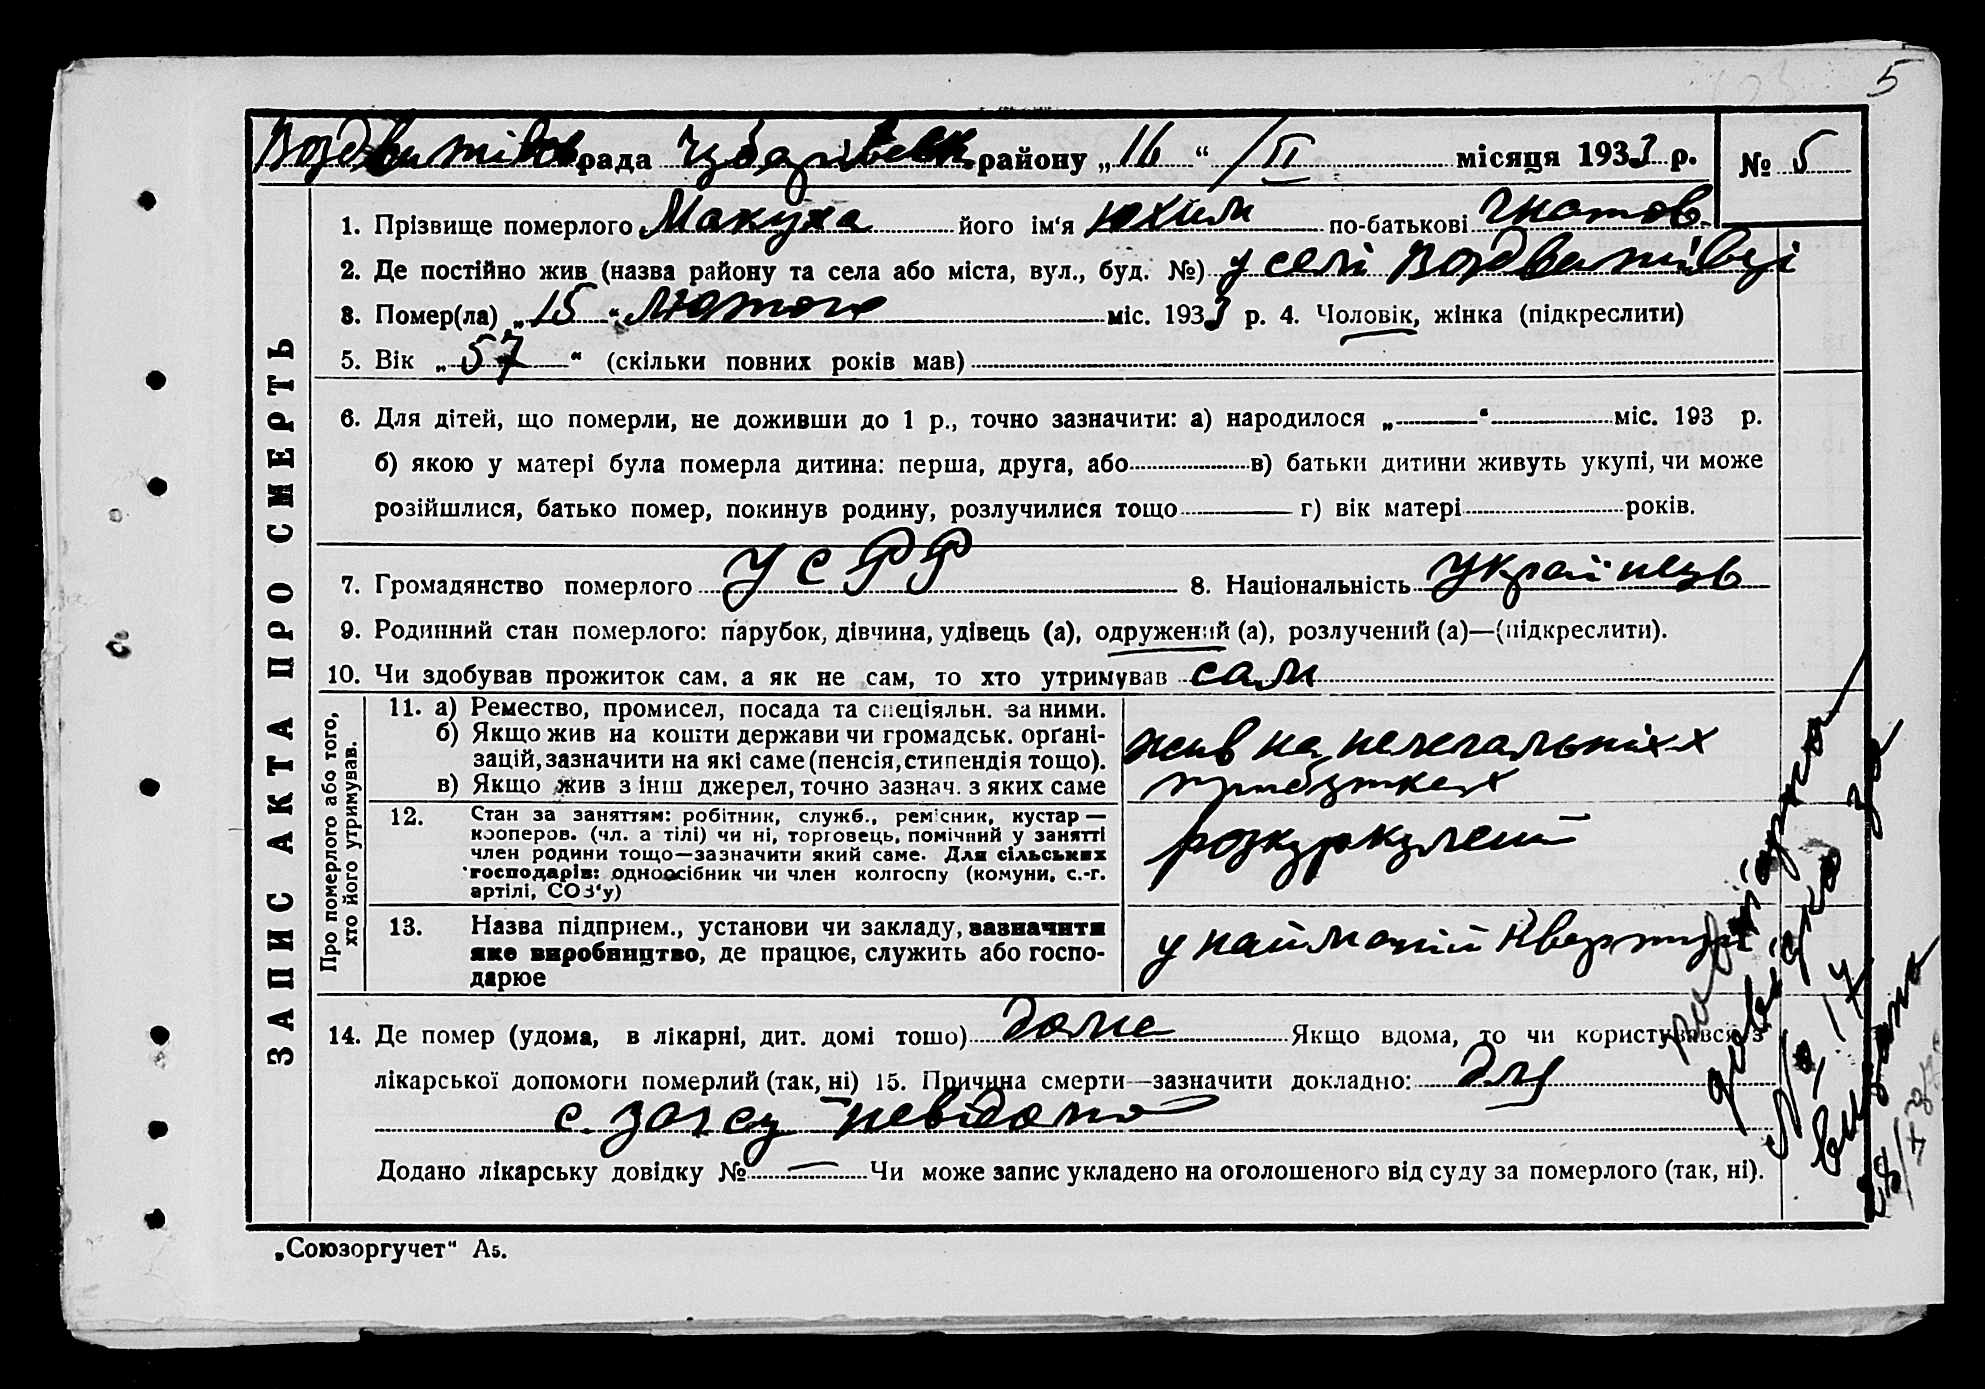 5
Воздвижівськ рада Чубарівськ. району „16“ /II місяця 1933 р. № 5
ЗАПИС АКТА ПРО СМЕРТЬ
1. Прізвище померлого Макуха його ім'я Юхим по-батькові Гнатов.
2. Де постійно жив (назва району та села або міста, вул., буд. №) у селі Воздвижівці
3. Помер(ла) „15“ Лютого міс. 1933 р. 4. Чоловік, жінка (підкреслити)
5. Вік „57“ (скільки повних років мав)
6. Для дітей, що померли, не доживши до 1 р., точно зазначити: а) народилося „—“ міс. 193 р.
б) якою у матері була померла дитина: перша, друга, або в) батьки дитини живуть укупі, чи може
розійшлися, батько помер, покинув родину, розлучилися тощо г) вік матері років.
7. Громадянство померлого УСРР 8. Національність Українець
9. Родинний стан померлого: парубок, дівчина, удівець (а), одружений (а), розлучений (а)—(підкреслити).
10. Чи здобував прожиток сам, а як не сам, то хто утримував сам
Про померлого або того,
хто його утримував.
11. а) Ремество, промисел, посада та спеціяльн. за ними.
б) Якщо жив на кошти держави чи громадськ. орґані-
зацій, зазначити на які саме (пенсія, стипендія тощо).
в) Якщо жив з інш джерел, точно зазнач. з яких саме
жив на нелегальніх
прибутках
12. Стан за заняттям: робітник, служб., ремісник, кустар—
кооперов. (чл. а тілі) чи ні, торговець, помічний у занятті
член родини тощо—зазначити який саме. Для сільських
господарів: одноосібник чи член колгоспу (комуни, с.-г.
артілі, СОЗ'у)
розкуркулений
13. Назва підприєм., установи чи закладу, зазначити
яке виробництво, де працює, служить або госпо-
дарює
у найманій квартирі
14. Де помер (удома, в лікарні, дит. домі тошо) дома Якщо вдома, то чи користувався з
лікарської допомоги померлий (так, ні) 15. Причина смерти—зазначити докладно: для
с. загсу невідома
Додано лікарську довідку № — Чи може запис укладено на оголошеного від суду за померлого (так, ні).
№ 17
видана
„Союзоргучет“ А5.